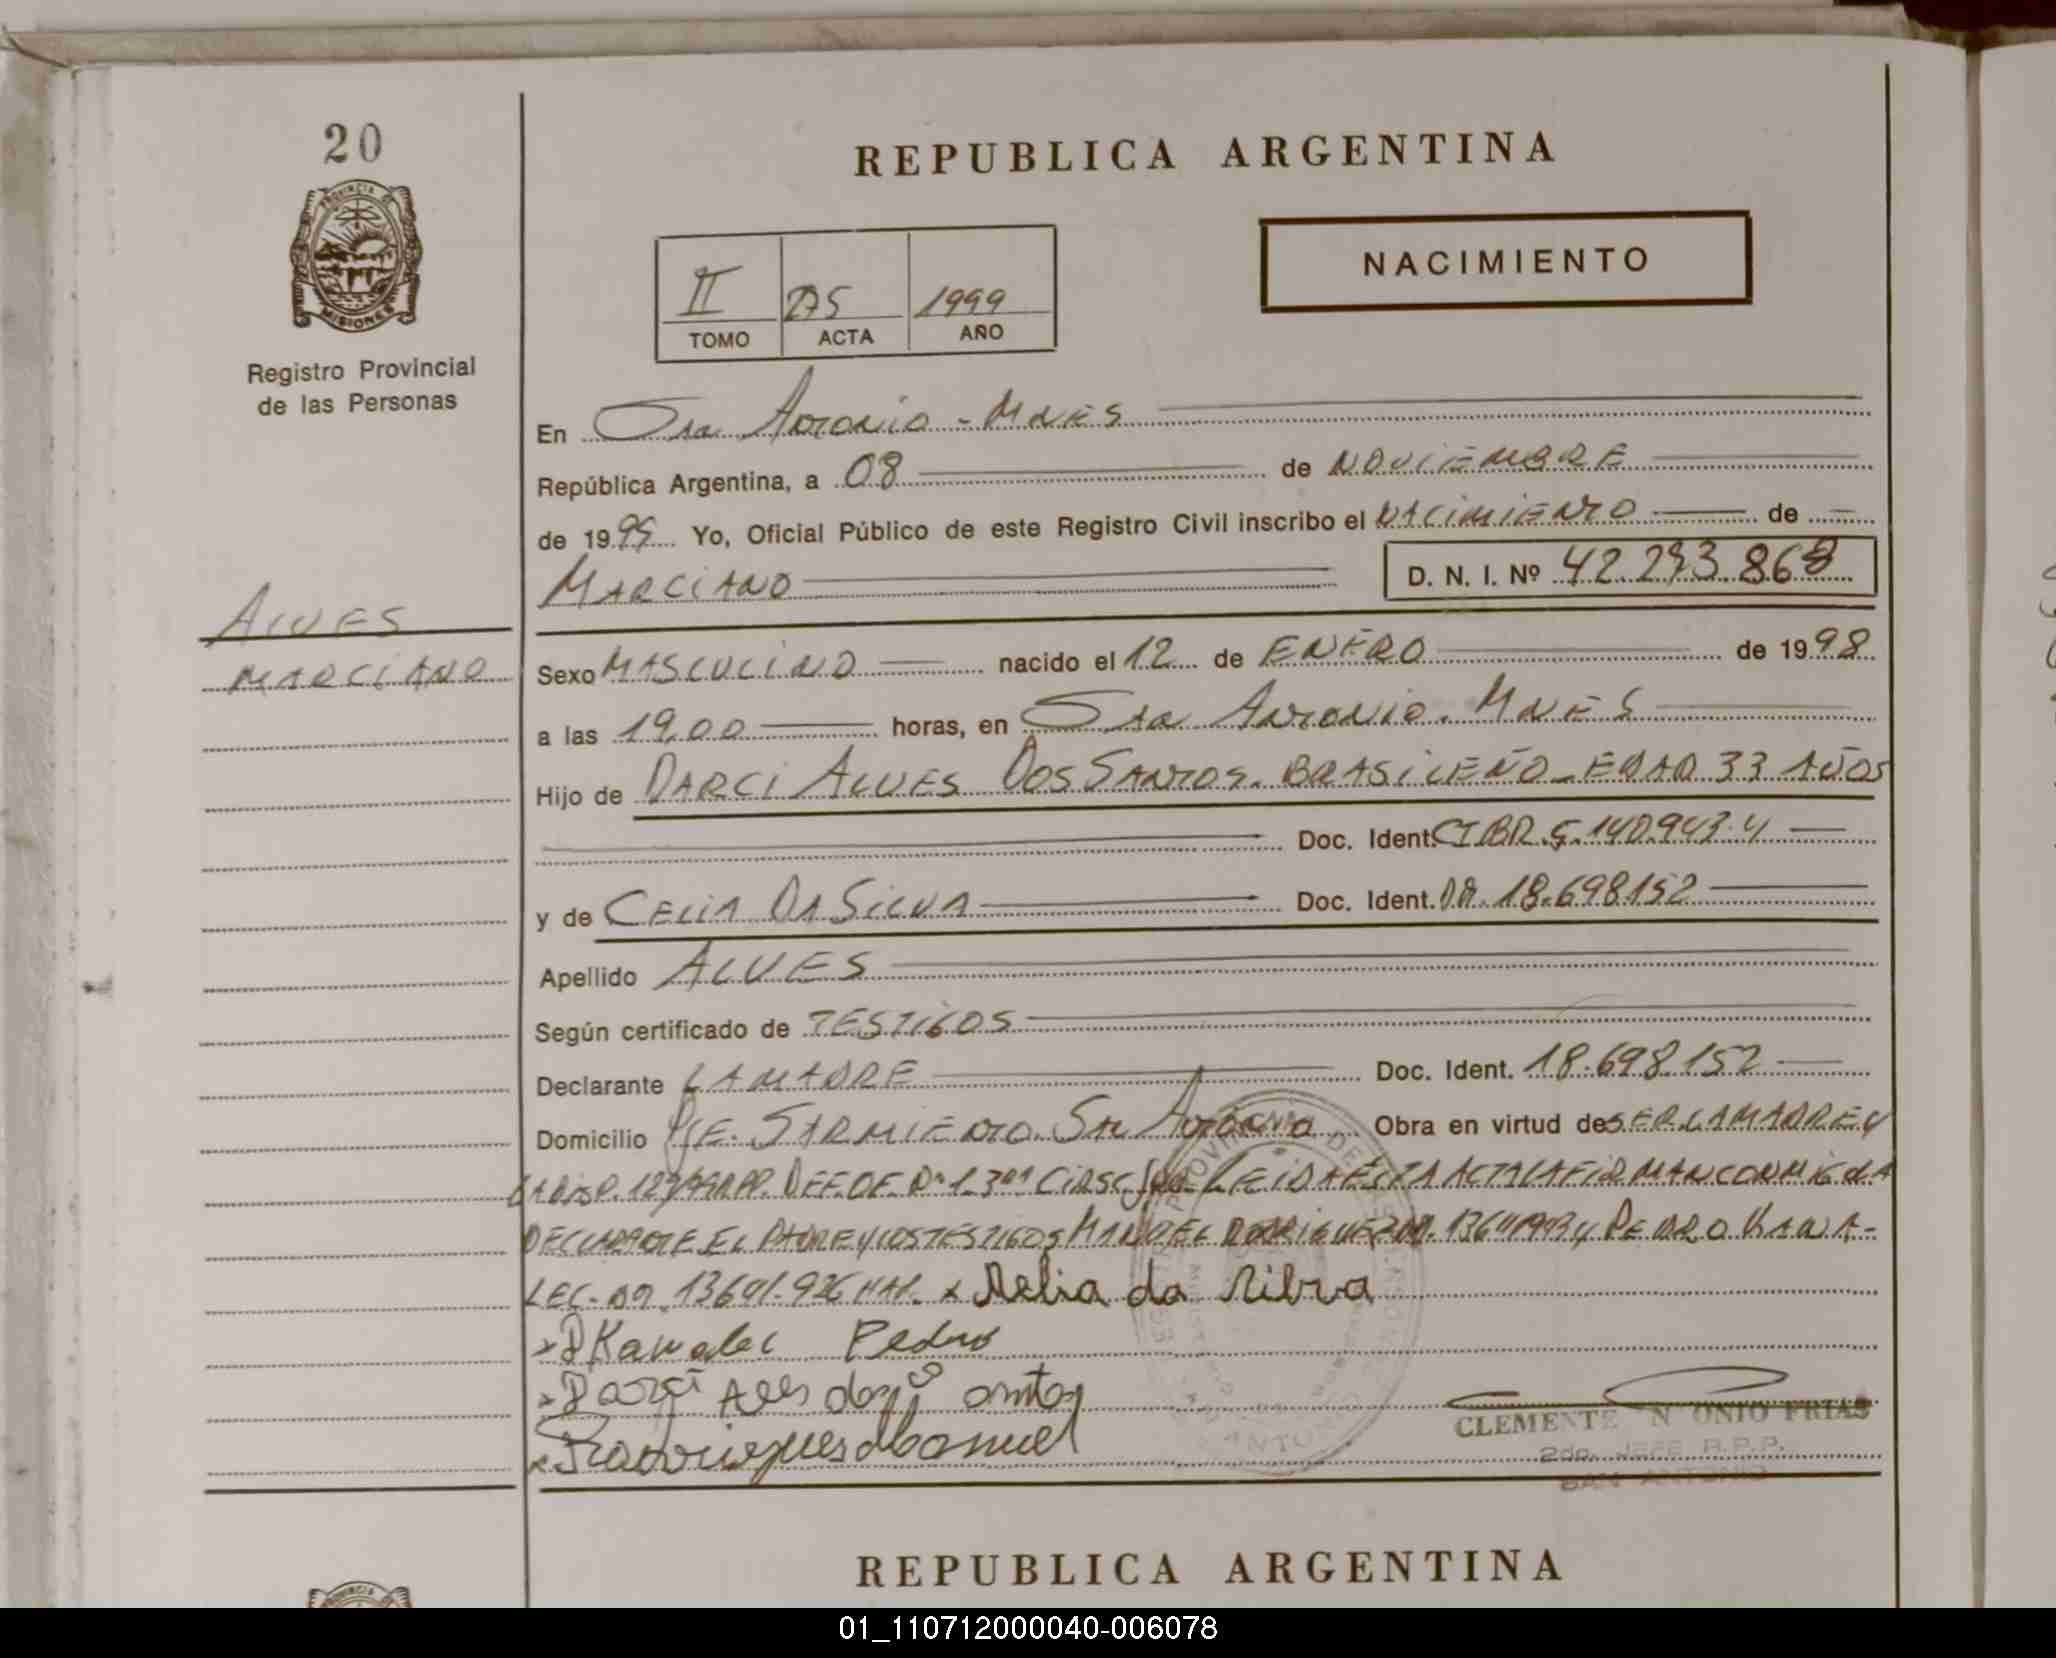 20
REPUBLICA ARGENTINA
PROVINCIA DE
MISIONES
Registro Provincial
de las Personas
NACIMIENTO
II 275 1999
TOMO ACTA AÑO
En San Antonio - Mnes
República Argentina, a 08 de NOVIEMBRE
de 1999 Yo, Oficial Público de este Registro Civil inscribo el NACIMIENTO de
MARCIANO D. N. I. Nº 42.293.868
ALVES
MARCIANO
Sexo MASCULINO nacido el 12 de ENERO de 1998
a las 19,00 horas, en San Antonio. Mnes
Hijo de DARCI ALVES DOS SANTOS. BRASILEÑO - EDAD 33 AÑOS
Doc. Ident. CIBR.5.140.943.4
y de CELIA DA SILVA Doc. Ident. 18.698152
Apellido ALVES
Según certificado de TESTIGOS
Declarante LA MADRE Doc. Ident. 18.698.152
Domicilio PJE. SARMIENTO. San Antonio Obra en virtud de SER LA MADRE Y
LEIDA ESTA ACTA LA FIRMAN CONMIGO LA
DECLARANTE EL PADRE Y LOS TESTIGOS MANUEL Y PEDRO KAWA-
LEC - x Selia da Silva
x P Kawalec Pedro
x Darci Alves dos Santos
x Rodrigues Manuel
CLEMENTE N ONIO FRIAS
2do. JEFE R.P.P.
SAN ANTONIO
REPUBLICA ARGENTINA
01_110712000040-006078